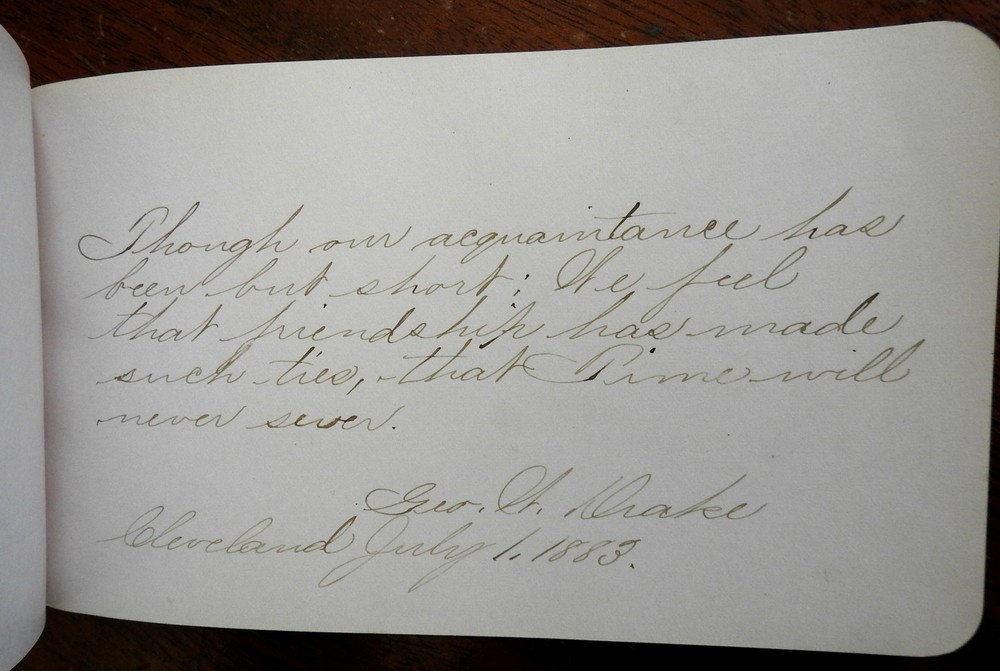 Though our acquaintance has
been but short; We feel
that friendship has made
such ties, that Time will
never sever.
Geo. W. Drake
Cleveland July 1, 1883.